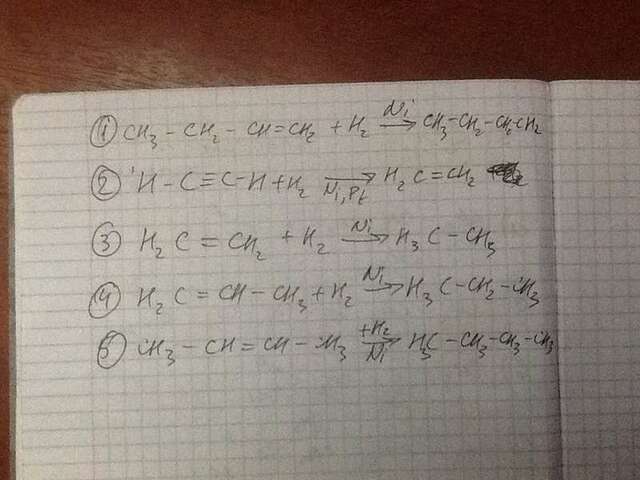 ① CH₃ - CH₂ - CH = CH₂ + H₂ —Ni→ CH₃-CH₂-CH₂-CH₂
② H - C ≡ C - H + H₂ —Ni, Pt→ H₂C = CH₂
③ H₂C = CH₂ + H₂ —Ni→ H₃C - CH₃
④ H₂C = CH - CH₃ + H₂ —Ni→ H₃C - CH₂ - CH₃
⑤ CH₃ - CH = CH - CH₃ —+H₂ Ni→ H₃C - CH₃ - CH₃ - CH₃